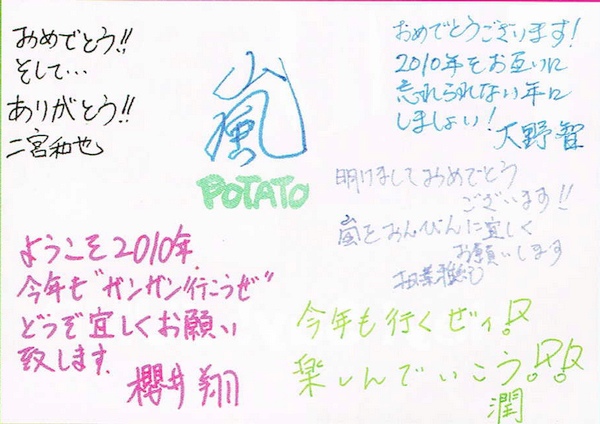 おめでとう!!
そして…
ありがとう!!
二宮和也
嵐
POTATO
おめでとうございます!
2010年をお互いに
忘れられない年に
しましょい!
大野智
明けましておめでとう
ございます!!
嵐をおんびんに宜しく
お願いします
相葉雅紀
ようこそ2010年.
今年も"ガンガン行こうぜ"
どうぞ宜しくお願い
致します.
櫻井翔
今年も行くぜィ!
楽しんでいこう!!
潤